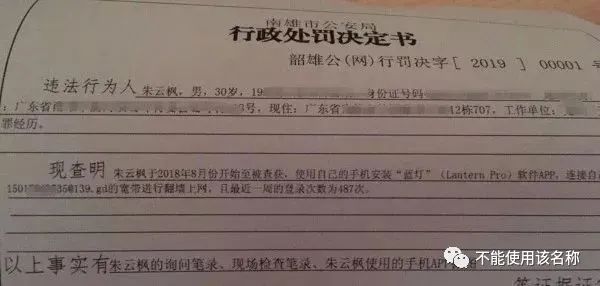 南雄市公安局
行政处罚决定书
韶雄公(网)行罚决字[ 2019 ] 00001 号
违法行为人 朱云枫，男，30岁，19 身份证号码
：广东省 号，现住：广东省 2栋707，工作单位：
罪经历。
现查明 朱云枫于2018年8月份开始至被查获，使用自己的手机安装“蓝灯”（Lantern Pro）软件APP，连接自
139.gd的宽带进行翻墙上网，且最近一周的登录次数为487次。
以上事实有 朱云枫的询问笔录、现场检查笔录、朱云枫使用的手机AP
不能使用该名称